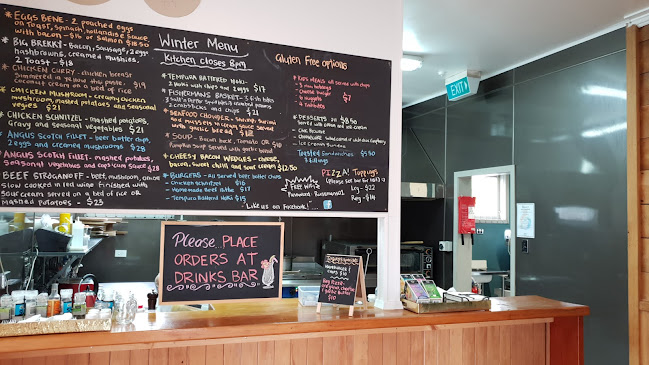 Winter Menu
Kitchen closes 8pm
Gluten Free options
* EGGS BENE - 2 poached eggs
on Toast, spinach, hollandaise sauce
with bacon - $16 or Salmon $18.50
* BIG BREKKY - Bacon, sausage, 2 eggs
hashbrowns, creamed mushies,
2 Toast - $18
* CHICKEN CURRY - chicken breast
coconut cream on a bed of rice
* CHICKEN MUSHROOM - creamy chicken
mushroom, mashed potatoes and seasonal
veges $21
* CHICKEN SCHNITZEL - mashed potatoes,
Gravy and seasonal vegetables $21
* ANGUS SCOTCH FILLET - beer batter chips,
2 eggs and creamed mushrooms $28
* ANGUS SCOTCH FILLET - mashed potatoes,
Seasonal vegetables and capsicum sauce $28
* BEEF STROGANOFF - beef, mushroom, onion
slow cooked in red wine finished with
sour cream served on a bed of rice OR
mashed potatoes - $23
* TEMPURA BATTERED Hoki -
2 Hoki with chips and 2 eggs $17
* FISHERMANS BASKET - 2 fish bites
2 crabsticks and chips $21
* SEAFOOD CHOWDER - shrimp, surimi
and mussels in creamy sauce served
with garlic bread $18
* SOUP - Bacon hock, Tomato OR $10
Pumpkin soup served with garlic bread
* CHEESY BACON WEDGES - cheese,
bacon, sweet chilli and sour cream $12.50
* BURGERS - all served beer batter chips
- Chicken Schnitzel $16
- Homemade Beef Pattie $17
- Tempura Battered Hoki $15
Like us on Facebook!
FREE WIFI
* KIDS MEALS all served with chips
- 2 mini hotdogs
- Cheese burger
- 6 nuggets
$7
* DESSERTS - $8.50
Served with cream and ice cream
- Ice cream Sundae
Toasted Sandwiches $5.50
3 fillings
PIZZA! Toppings
(Please see bar for list)
Lrg - $22
Reg - $14
EXIT
Please PLACE
ORDERS AT
DRINKS BAR
$10